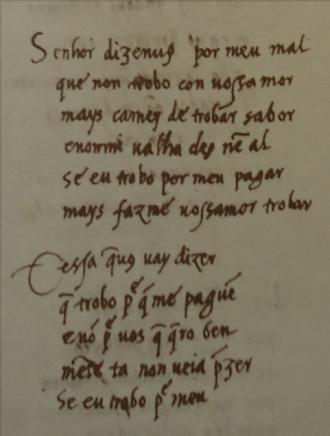 Senhor dizenuꝯ por meu mal
que non trobo con uossamor
mays camey de trobar sabor
enonmi ualha deꝯ nẽ al
se eu trobo por meu pagar
mays fazme uossamor trobar
Essa q̃uꝯ uay dizer
q̃ trobo p̃ q̃ me paguẽ
e nõ p̃ uos q̃ q̃ro ben
mẽte ca non ueia p̃zer
se eu trobo p̃ meu